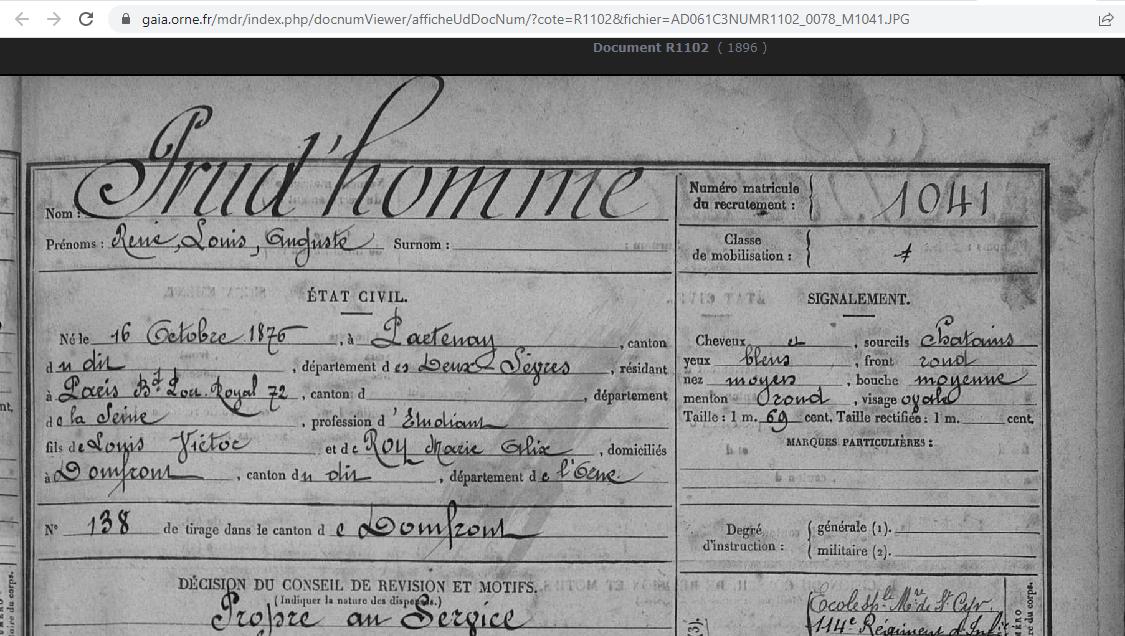 gaia.orne.fr/mdr/index.php/docnumViewer/afficheUdDocNum/?cote=R1102&fichier=AD061C3NUMR1102_0078_M1041.JPG
Document R1102 ( 1896 )
Prud'homme
Nom :
Prénoms : René, Louis, Auguste Surnom :
ÉTAT CIVIL.
Né le 16 Octobre 1876, à Partenay, canton
du dit, département des Deux-Sèvres, résidant
à Paris Bd Port Royal 72, canton d , département
de la Seine, profession d'Etudiant
fils de Louis Victor et de Roy Marie Alix, domiciliés
à Domfront, canton du dit, département de l'Orne
N° 138 de tirage dans le canton de Domfront
DÉCISION DU CONSEIL DE REVISION ET MOTIFS.
(Indiquer la nature des dispenses.)
Propre au Service
Numéro matricule
du recrutement : 1041
Classe
de mobilisation :
SIGNALEMENT.
Cheveux et, sourcils Chatains
yeux bleus, front rond
nez moyen, bouche moyenne
menton rond, visage ovale
Taille : 1 m. 69 cent. Taille rectifiée : 1 m. cent.
MARQUES PARTICULIÈRES :
Degré
d'instruction :
générale (1).
militaire (2).
Ecole Sple Mre de St Cyr.
114e Régiment d'Inf